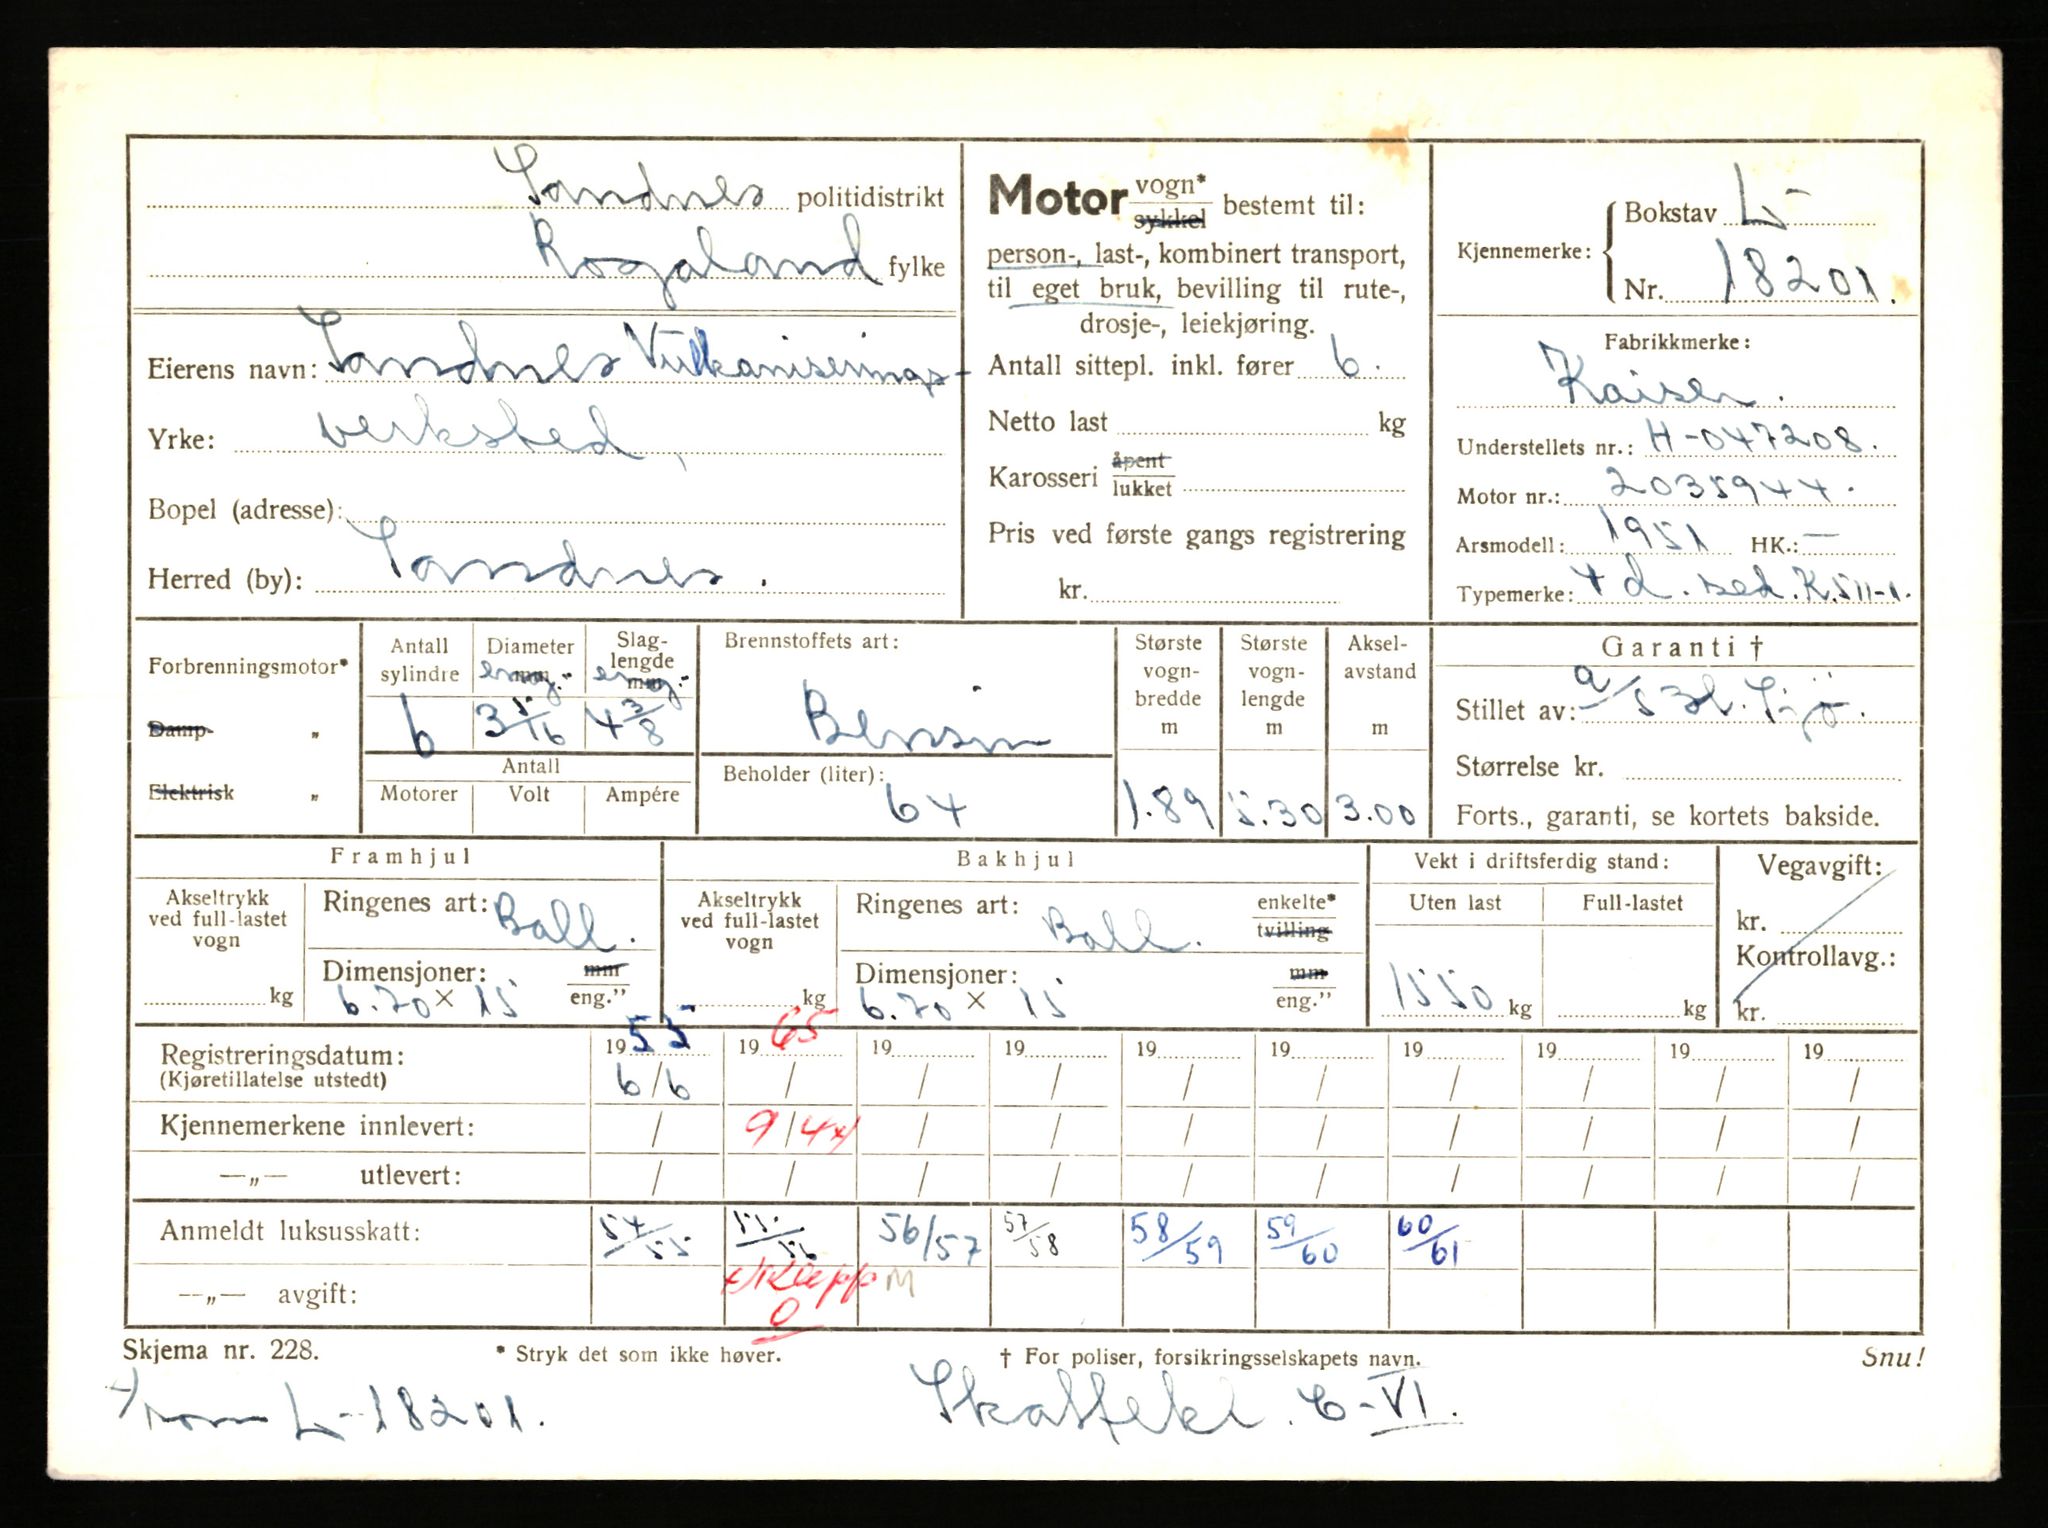 Sandnes politidistrikt
Rogaland fylke
Eierens navn: Sandnes Vulkaniserings-
Yrke: verksted,
Bopel (adresse):
Herred (by): Sandnes.
Motor vogn* sykkel bestemt til:
person-, last-, kombinert transport,
til eget bruk, bevilling til rute-,
drosje-, leiekjøring.
Antall sittepl. inkl. fører 6.
Netto last kg
Karosseri åpent lukket
Pris ved første gangs registrering
kr.
Kjennemerke: Bokstav L-
Nr. 18201.
Fabrikkmerke:
Kaiser.
Understellets nr.: H-047208.
Motor nr.: 2035944.
Arsmodell: 1951 HK.: —
Typemerke: 4 d. sed. K.511-1.
Forbrenningsmotor*
Damp- „
Elektrisk „
Antall sylindre
6
Diameter mm eng.
3 5/16
Slag-lengde mm eng.
4 3/8
Antall
Motorer Volt Ampére
Brennstoffets art:
Bensin
Beholder (liter):
64
Største vogn-bredde m
1.89
Største vogn-lengde m
5.30
Aksel-avstand m
3.00
Garanti †
Stillet av: a/s
Størrelse kr.
Forts., garanti, se kortets bakside.
Framhjul
Akseltrykk ved full-lastet vogn
kg
Ringenes art: Ball.
Dimensjoner: mm eng.”
6.70 x 15
Bakhjul
Akseltrykk ved full-lastet vogn
kg
Ringenes art: Ball. enkelte* tvilling
Dimensjoner: mm eng.”
6.70 x 15
Vekt i driftsferdig stand:
Uten last Full-lastet
1550 kg kg
Vegavgift:
kr.
Kontrollavg.:
kr.
Registreringsdatum: 1955 1965 19 19 19 19 19 19 19 19
(Kjøretillatelse utstedt) 6/6 / / / / / / / / /
Kjennemerkene innlevert: / 9/4 x) / / / / / / / /
—„— utlevert: / / / / / / / / / /
Anmeldt luksusskatt: 54/55 55/56 56/57 57/58 58/59 59/60 60/61
—„— avgift: x) Klepp M
0
Skjema nr. 228. * Stryk det som ikke høver. † For poliser, forsikringsselskapets navn. Snu!
L-18201. Skattekl. C-VI.